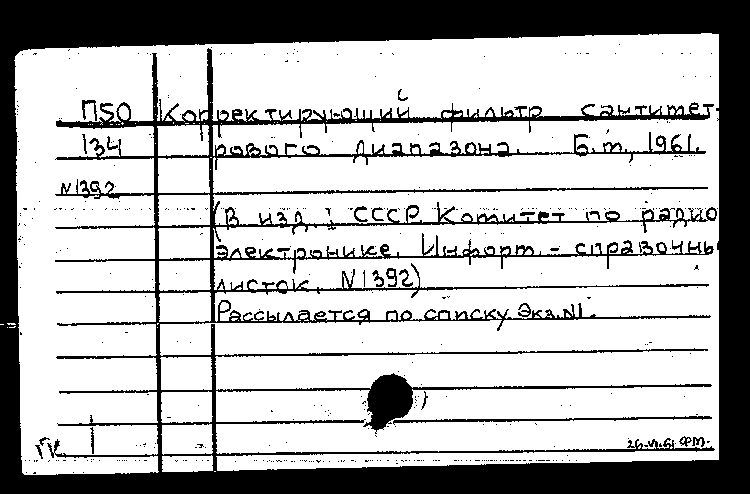 П50 Корректирующий фильтр сантимет-
134 рового диапазона. Б.м., 1961.
N1392
(В изд. : СССР. Комитет по радио
электронике. Информ. - справочны
листок. N1392)
Рассылается по списку. Экз. N1.
ПК
26.VI.61 ФМ.